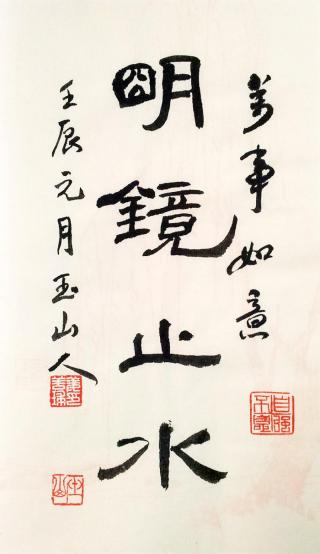 萬事如意
朙鏡止水
壬辰元月玉山人